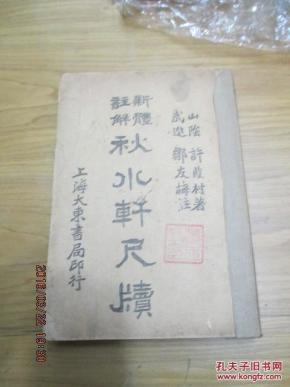 山陰 許葭村著
武進 鄒友梅註
新體
註解
秋水軒尺牘
上海大東書局印行
2018/03/22
孔夫子旧书网
www.kongfz.com